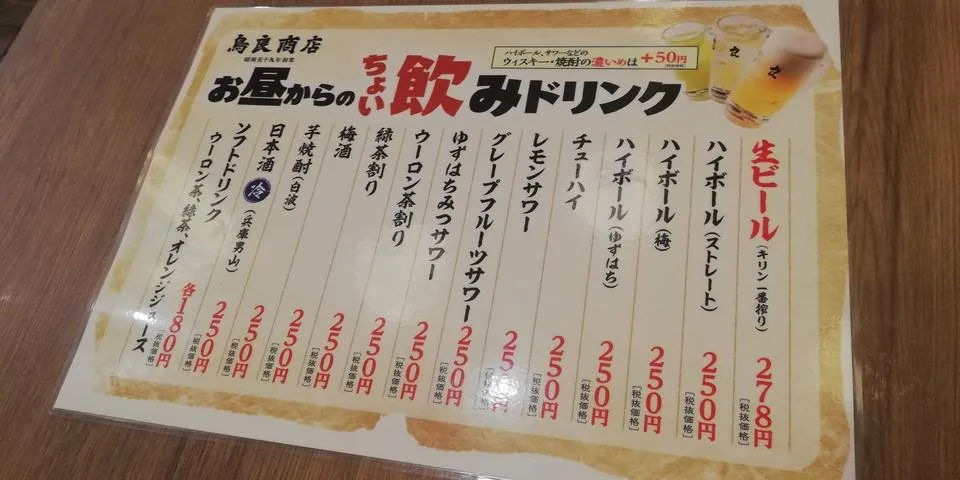 鳥良商店
昭和五十九年創業
お昼からのちょい飲みドリンク
ハイボール、サワーなどの
ウィスキー・焼酎の濃いめは +50円
生ビール(キリン一番搾り) 278円 [税抜価格]
ハイボール(ストレート) 250円 [税抜価格]
ハイボール(梅) 250円 [税抜価格]
ハイボール(ゆずはち) 250円 [税抜価格]
チューハイ 250円 [税抜価格]
レモンサワー 250円 [税抜価格]
グレープフルーツサワー 25 円
ゆずはちみつサワー 250円 [税抜価格]
ウーロン茶割り 250円 [税抜価格]
緑茶割り 250円 [税抜価格]
梅酒 250円 [税抜価格]
芋焼酎(白波) 250円 [税抜価格]
日本酒 冷 (兵庫男山) 250円 [税抜価格]
ソフトドリンク
ウーロン茶、緑茶、オレンジジュース 各180円 [税抜価格]